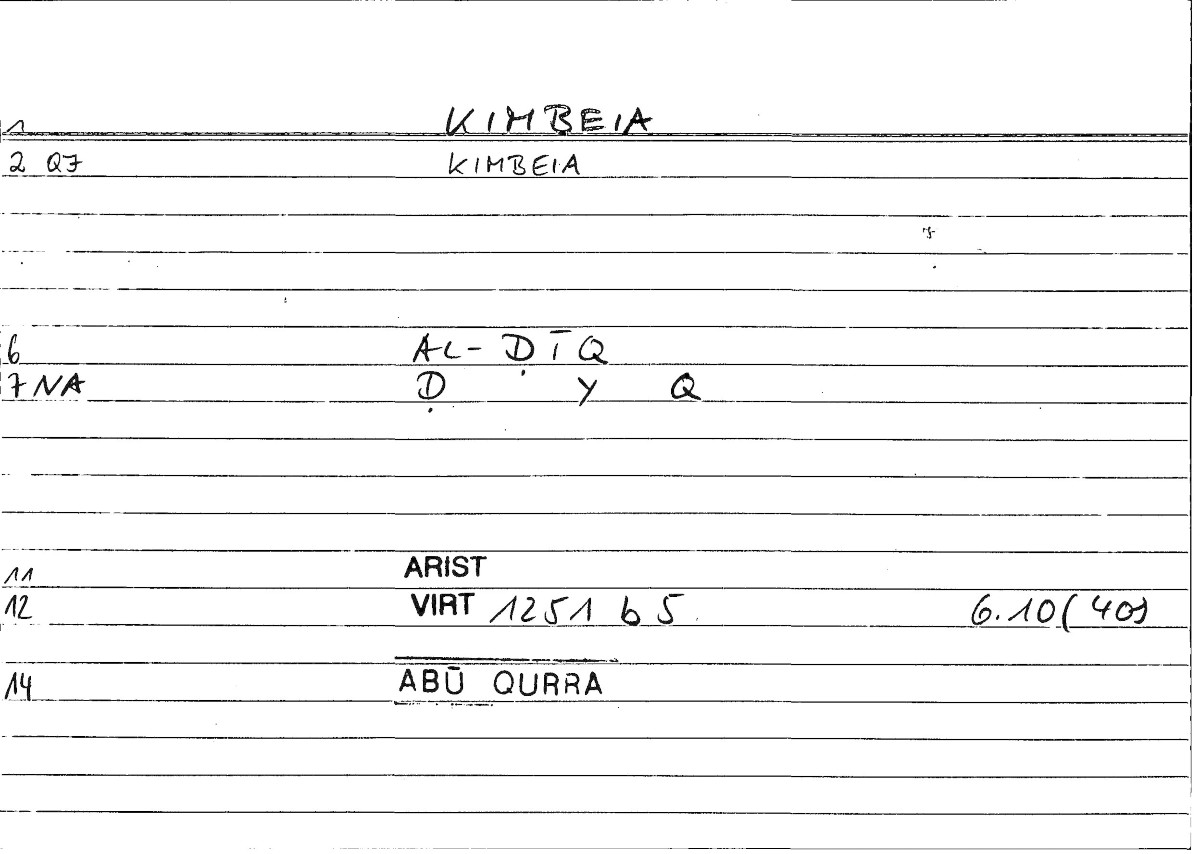 1 KIMBEIA
2 Q7 KIMBEIA
6 AL-ḌĪQ
7 NA Ḍ Y Q
11 ARIST
12 VIRT 1251 b 5 6.10(40)
14 ABŪ QURRA